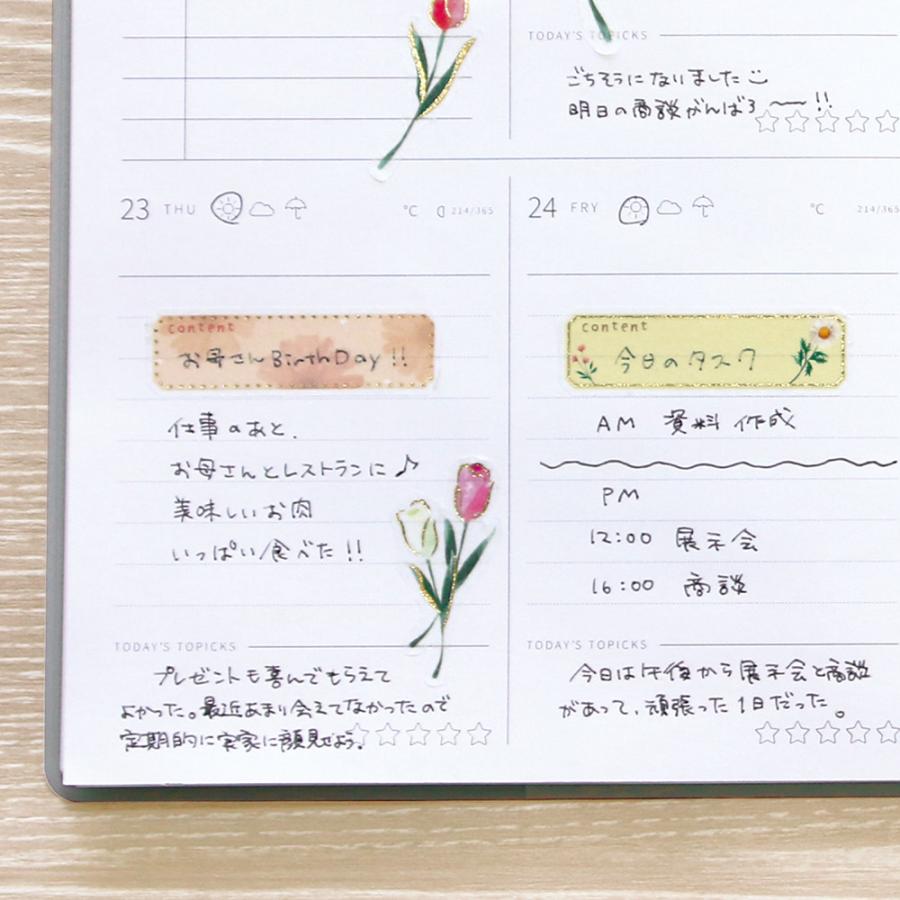 TODAY'S TOPICKS
ごちそうになりました
明日の商談がんばろ〜!!
23 THU ℃ 214/365
お母さんBirthDay!!
content
仕事のあと、
お母さんとレストランに♪
美味しいお肉
いっぱい食べた!!
TODAY'S TOPICKS
プレゼントも喜んでもらえて
よかった。最近あまり会えてなかったので
定期的に実家に顔見せよう。
24 FRY ℃ 214/365
content
今日のタスク
AM 資料作成
PM
12:00 展示会
16:00 商談
TODAY'S TOPICKS
今日は午後から展示会と商談
があって、頑張った1日だった。